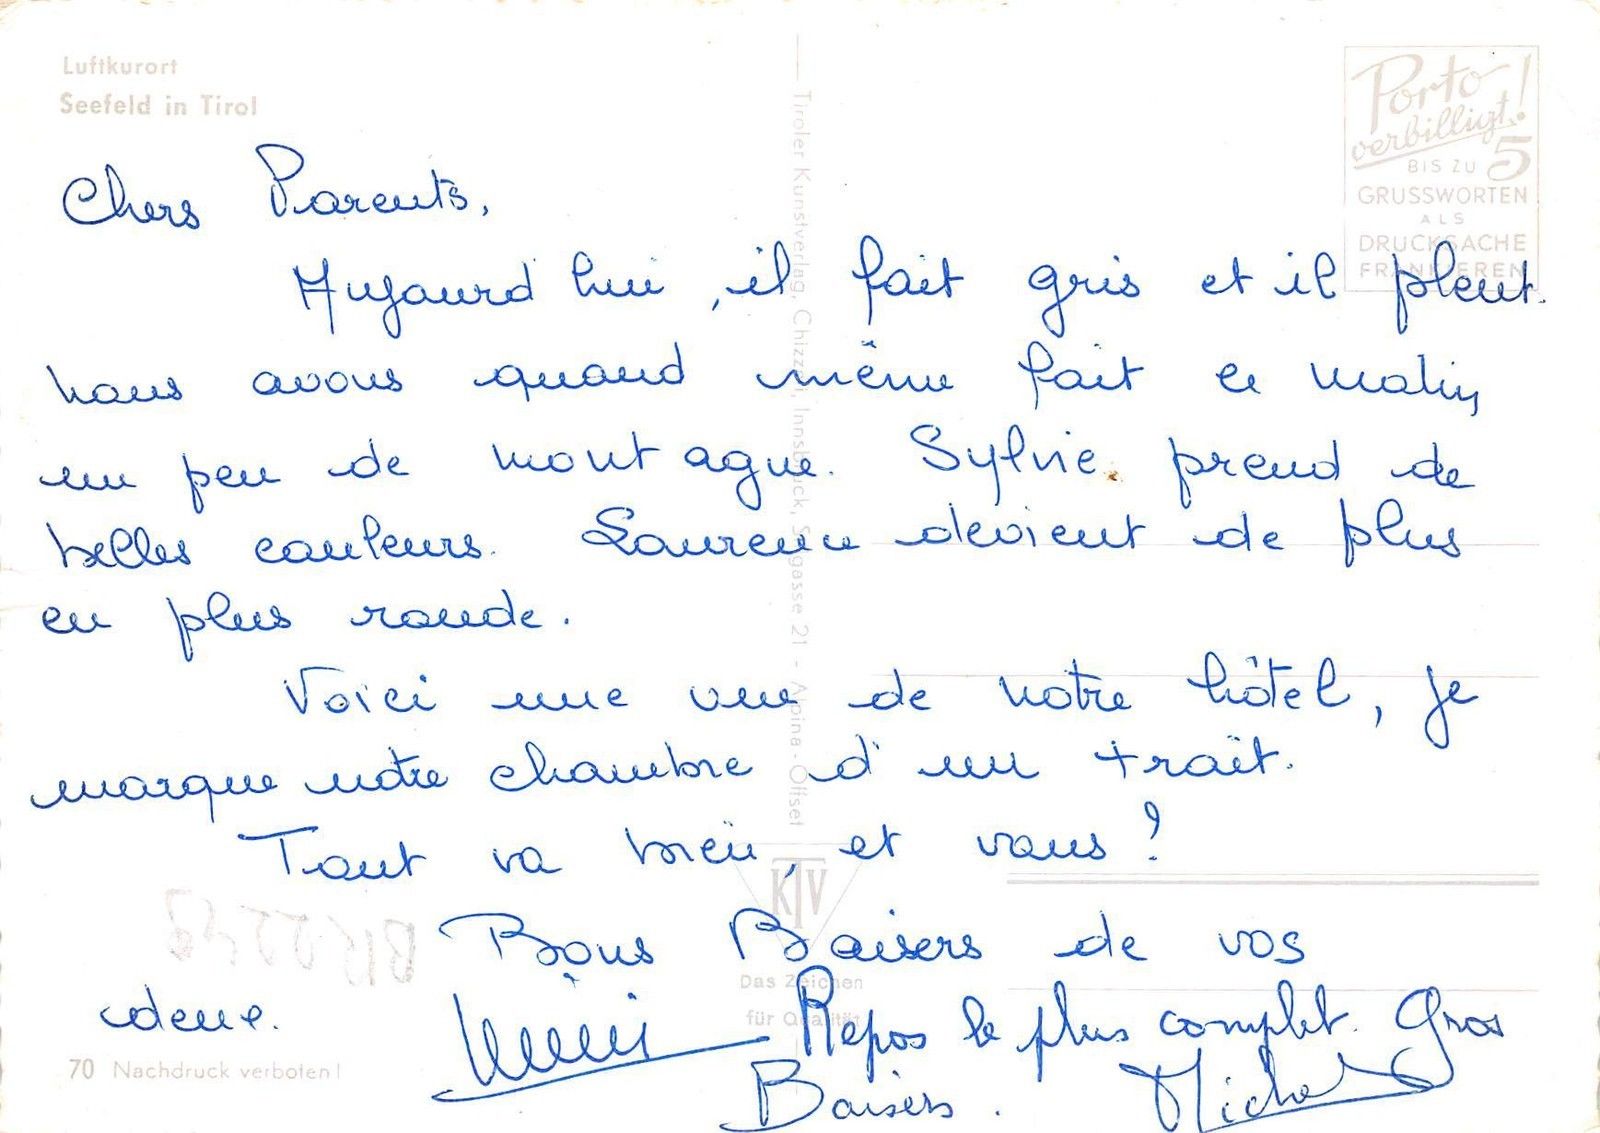 Luftkurort
Seefeld in Tirol
Porto
verbilligt!
BIS ZU 5
GRUSSWORTEN
ALS
DRUCKSACHE
FRANKIEREN
Chers Parents,
Aujourd'hui, il fait gris et il pleut.
nous avons quand même fait ce matin,
un peu de montagne. Sylvie prend de
belles couleurs. Laurence devient de plus
en plus ronde.
Voici une vue de notre hôtel, je
marque notre chambre d'un trait.
Tout va bien, et vous?
Bons Baisers de vos
deux.
Mimi Repos le plus complet. Gros
Baisers. Michel
Tiroler Kunstverlag, Chizzali, Innsbruck, Sillgasse 21 - Alpina-Offset
KTV
Das Zeichen
für Qualität
70 Nachdruck verboten!